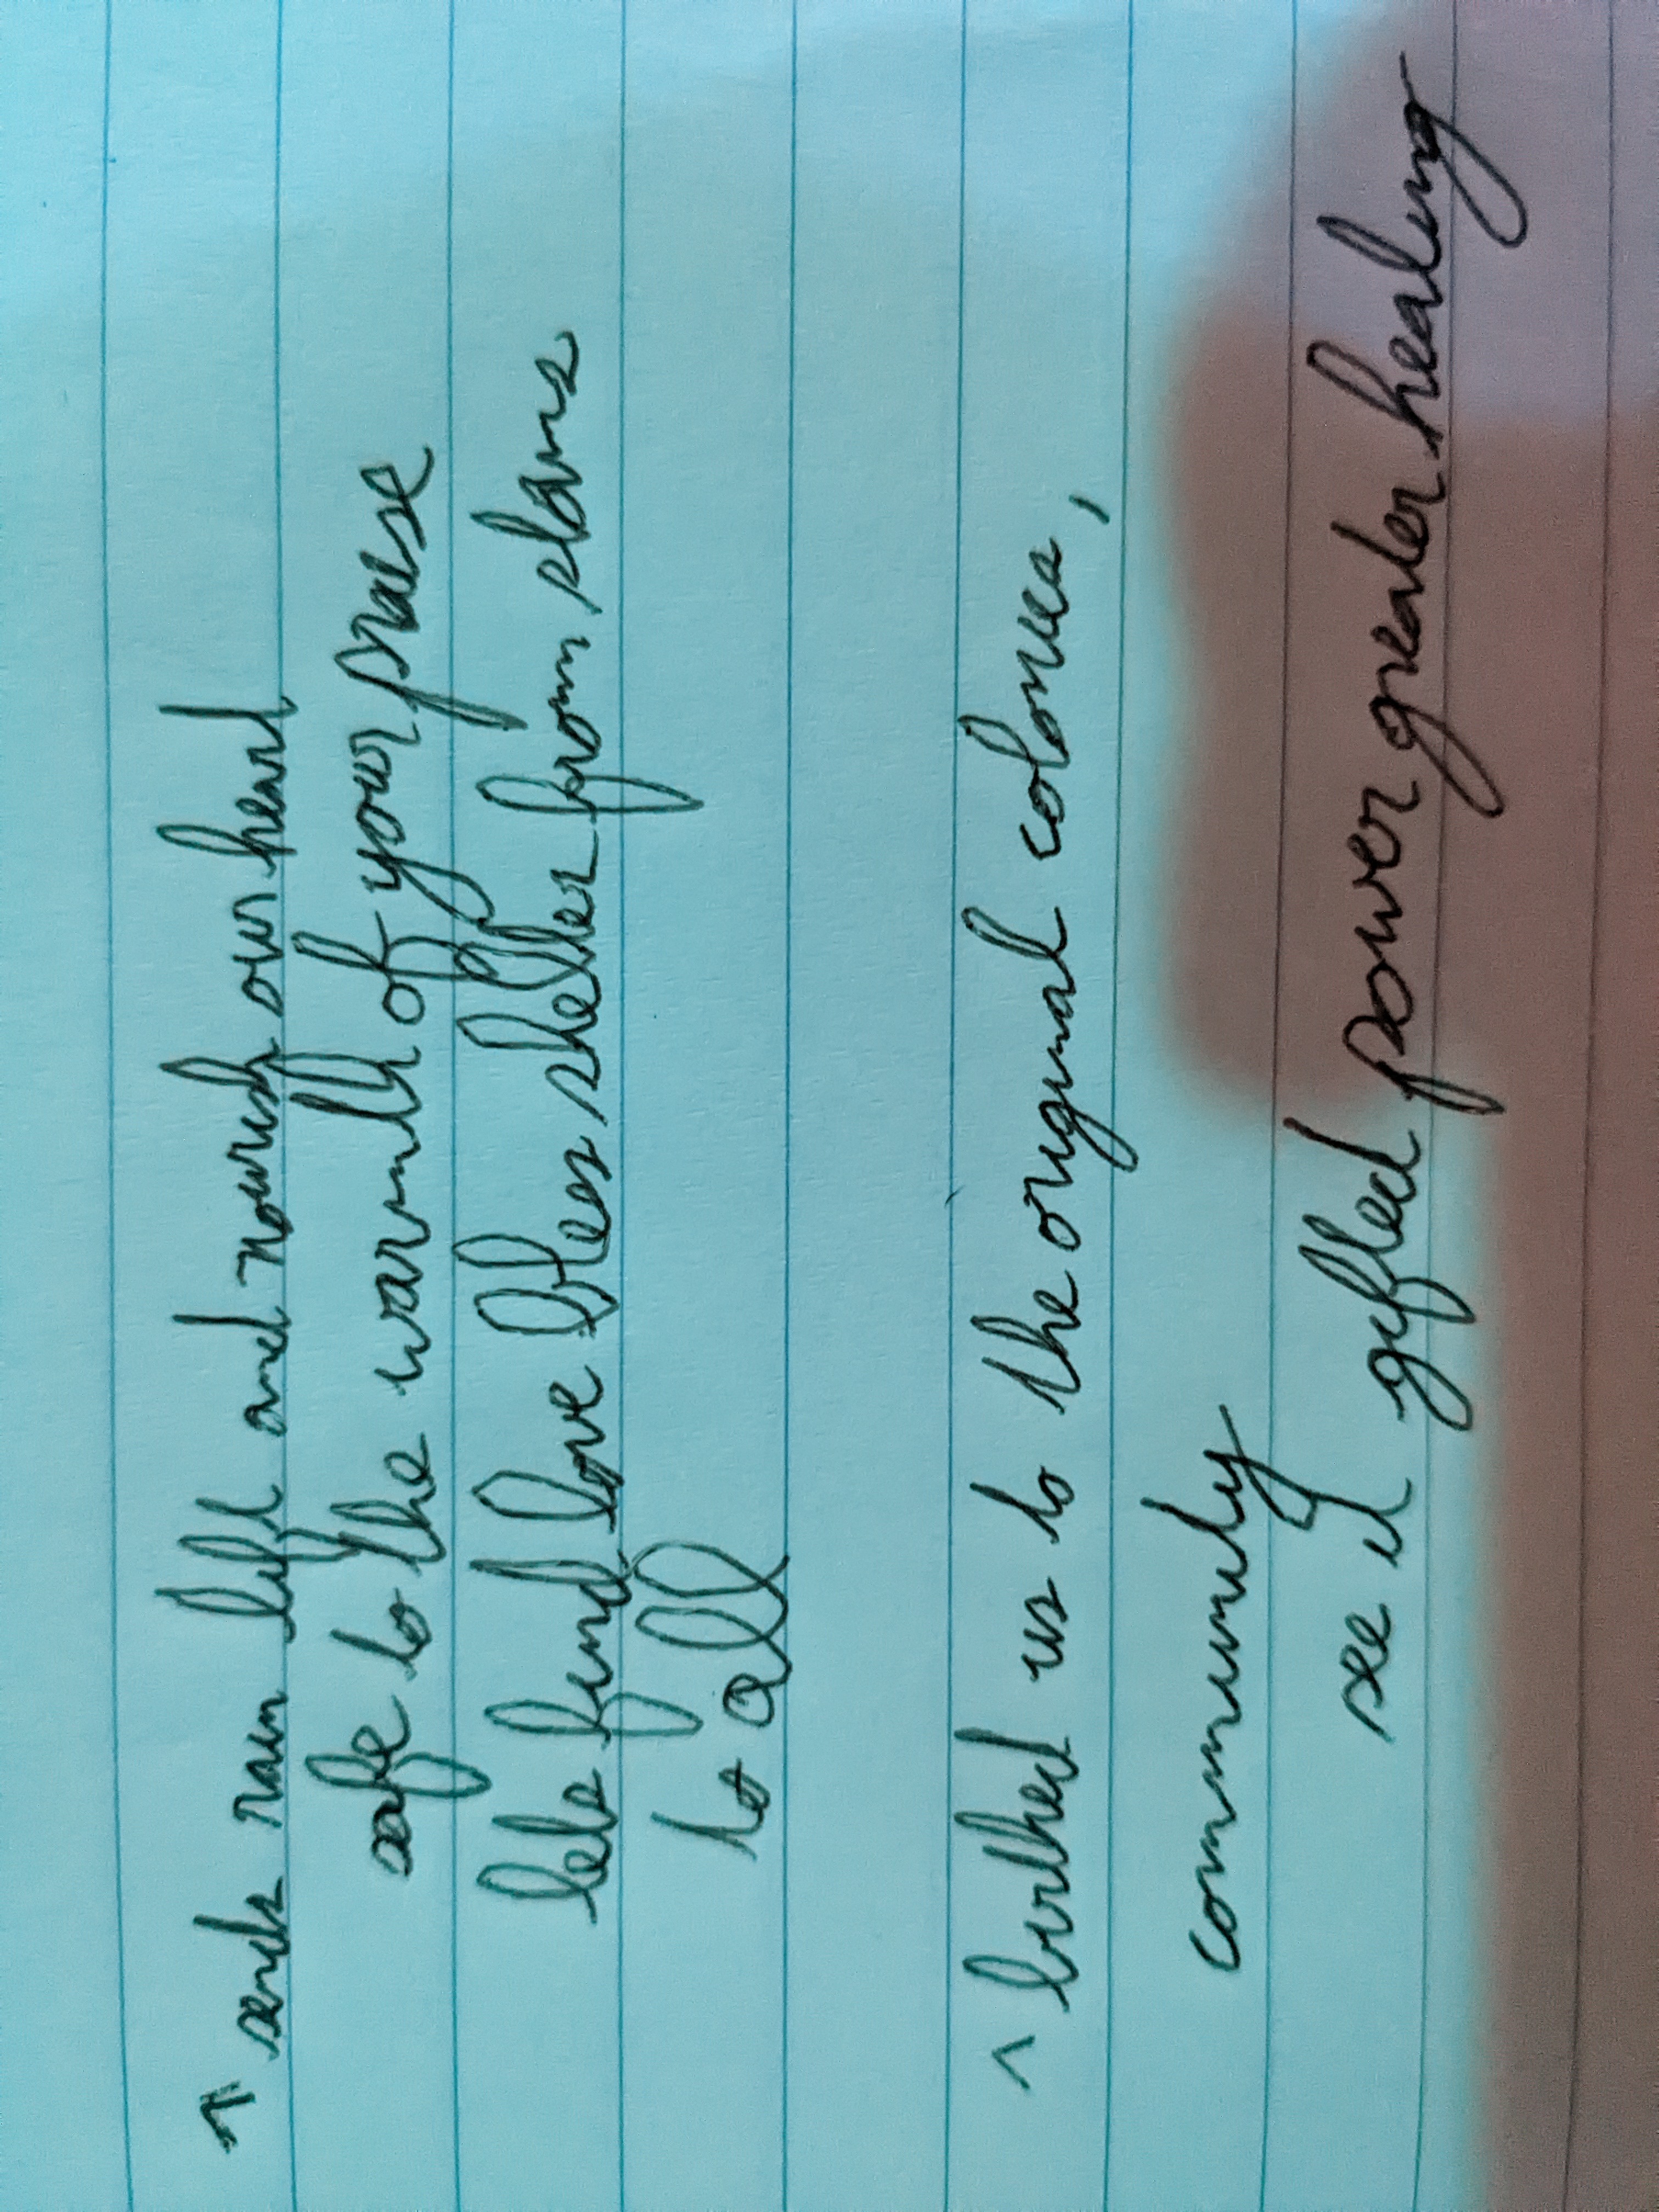 ^ sends rain lift and nourish our heart
safe to the warmth of your praise
lets find love bless shelter from slams
to all
^ birthed us to the original colonies,
community
see it gifted power greater healing